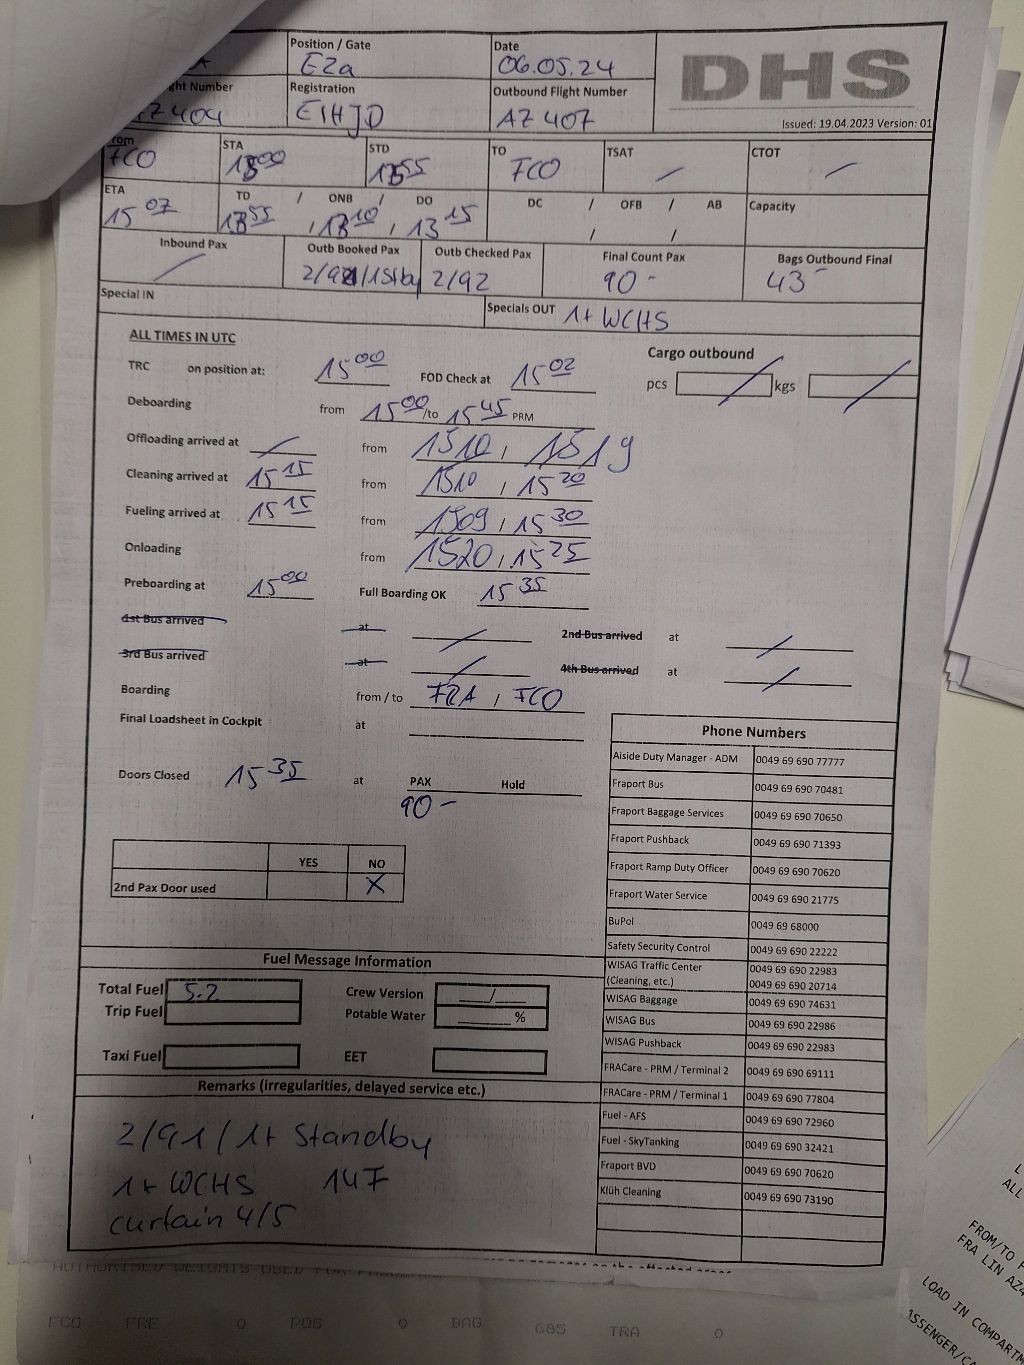 Position / Gate Date DHS
E2a 06.05.24
ght Number Registration Outbound Flight Number
EIHJD AZ 407
Issued: 19.04.2023 Version: 01
STA STD TO TSAT CTOT
FCO FCO / /
ETA TD / ONB / DO DC / OFB / AB Capacity
15 07 , , 13 15 / /
Inbound Pax Outb Booked Pax Outb Checked Pax Final Count Pax Bags Outbound Final
/ 2/92 90 - 43 -
Special IN Specials OUT 1+ WCHS
ALL TIMES IN UTC Cargo outbound
TRC on position at: 15 00 FOD Check at 15 02 pcs / kgs /
Deboarding from 15 00 /to 15 45 PRM
Offloading arrived at / from 1510, 1519
Cleaning arrived at 15 15 from 1510 , 15 20
Fueling arrived at 15 15 from 1509 , 15 30
Onloading from 1520 , 15 25
Preboarding at 15 00 Full Boarding OK 15 35
1st Bus arrived at / 2nd Bus arrived at /
3rd Bus arrived at / 4th Bus arrived at /
Boarding from / to FRA , FCO
Final Loadsheet in Cockpit at
Doors Closed 15 35 at PAX Hold
90 -
YES NO
2nd Pax Door used X
Phone Numbers
Aiside Duty Manager - ADM 0049 69 690 77777
Fraport Bus 0049 69 690 70481
Fraport Baggage Services 0049 69 690 70650
Fraport Pushback 0049 69 690 71393
Fraport Ramp Duty Officer 0049 69 690 70620
Fraport Water Service 0049 69 690 21775
BuPol 0049 69 68000
Safety Security Control 0049 69 690 22222
WISAG Traffic Center 0049 69 690 22983
(Cleaning, etc.) 0049 69 690 20714
WISAG Baggage 0049 69 690 74631
WISAG Bus 0049 69 690 22986
WISAG Pushback 0049 69 690 22983
FRACare - PRM / Terminal 2 0049 69 690 69111
FRACare - PRM / Terminal 1 0049 69 690 77804
Fuel - AFS 0049 69 690 72960
Fuel - SkyTanking 0049 69 690 32421
Fraport BVD 0049 69 690 70620
Klüh Cleaning 0049 69 690 73190
Fuel Message Information
Total Fuel 5.2 Crew Version ____/____
Trip Fuel Potable Water ______ %
Taxi Fuel EET
Remarks (irregularities, delayed service etc.)
2/91/1+ Standby
1+ WCHS 147
curtain 4/5
FCO FRE 0 POS 0 BAG 685 TRA 0
FROM/TO
FRA LIN
LOAD IN